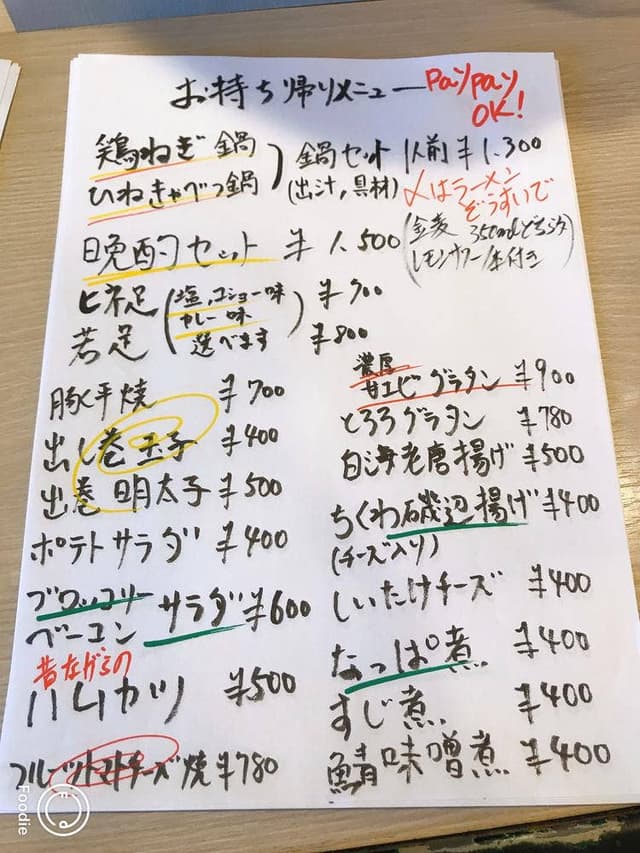 お持ち帰りメニュー
PayPay
OK!
鶏ねぎ鍋
ひねきゃべつ鍋
鍋セット 1人前 ¥1,300
(出汁,具材)
〆はラーメン
ぞうすいで
晩酌セット ¥1,500
(金麦 350ml
レモンサワー 1本付き)
ヒネ足 ¥900
若足 ¥800
(塩,コショー味
カレー味
選べます)
豚平焼 ¥700
出し巻玉子 ¥400
出巻明太子 ¥500
ポテトサラダ ¥400
ブロッコリー
ベーコン サラダ ¥600
昔ながらの
ハムカツ ¥500
フルーツトマトチーズ焼 ¥780
濃厚
甘エビグラタン ¥900
とろろグラタン ¥780
白海老唐揚げ ¥500
ちくわ磯辺揚げ ¥400
(チーズ入り)
しいたけチーズ ¥400
なっぱ煮 ¥400
すじ煮 ¥400
鯖味噌煮 ¥400
Foodie